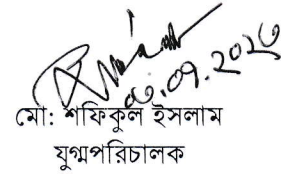 ০৩.০৭.২০২৩
মো: শফিকুল ইসলাম
যুগ্মপরিচালক